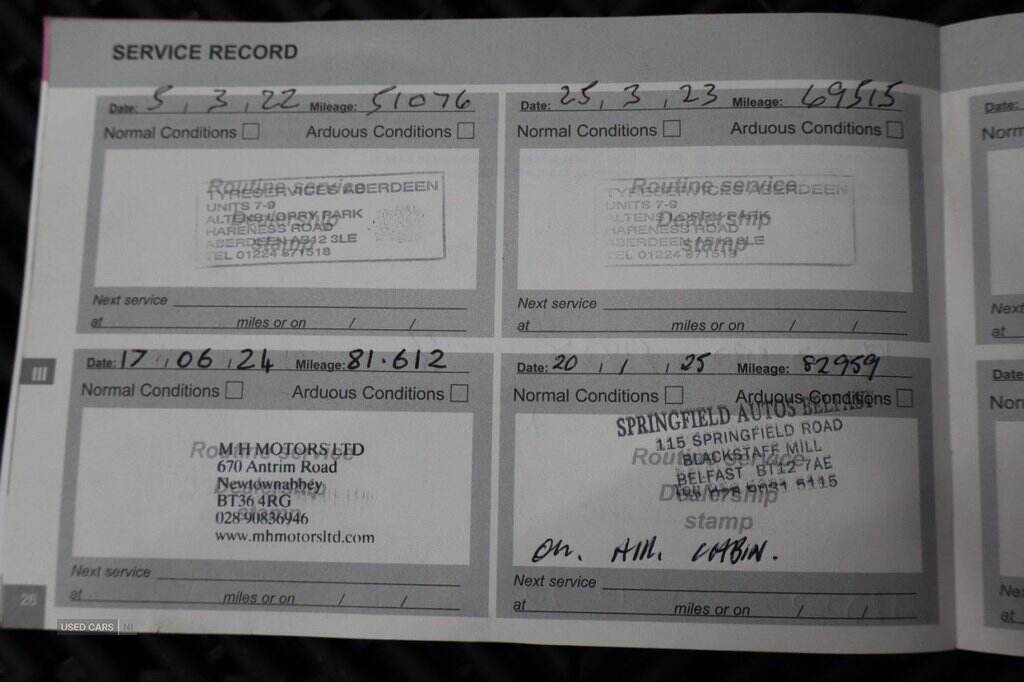 SERVICE RECORD
Date: 5, 3, 22 Mileage: 51076
Normal Conditions Arduous Conditions
Routine service
Dealership
stamp
TYRESERVICES ABERDEEN
UNITS 7-9
ALTENS LORRY PARK
HARENESS ROAD
ABERDEEN AB12 3LE
TEL 01224 871518
Next service
at miles or on / /
Date: 25, 3, 23 Mileage: 69515
Normal Conditions Arduous Conditions
Routine service
Dealership
stamp
TYRESERVICES ABERDEEN
UNITS 7-9
ALTENS LORRY PARK
HARENESS ROAD
ABERDEEN AB12 3LE
TEL 01224 871518
Next service
at miles or on / /
III
Date: 17, 06, 24 Mileage: 81.612
Normal Conditions Arduous Conditions
Routine service
Dealership
stamp
M H MOTORS LTD
670 Antrim Road
Newtownabbey
BT36 4RG
028 90836946
www.mhmotorsltd.com
Next service
at miles or on / /
Date: 20, 1, , 25 Mileage: 82959
Normal Conditions Arduous Conditions
Routine service
Dealership
stamp
SPRINGFIELD AUTOS BELFAST
115 SPRINGFIELD ROAD
BLACKSTAFF MILL
BELFAST BT12 7AE
OIL. AIR. CABIN.
Next service
at miles or on / /
26
Date:
Norm
Next
at
Date:
Nor
Ne
at
USED CARS NI